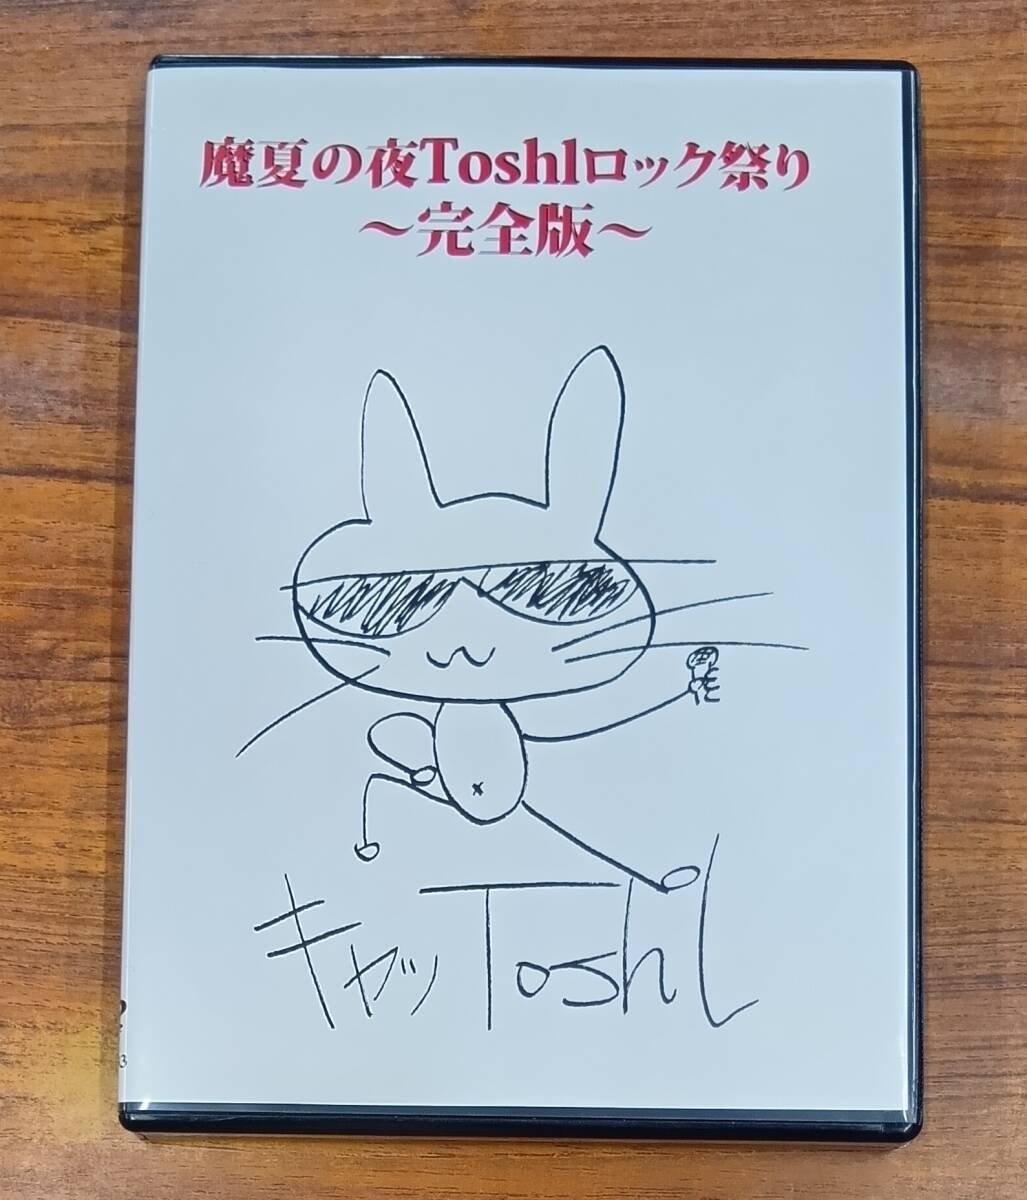 魔夏の夜Toshlロック祭り
～完全版～
キャッToshl
3